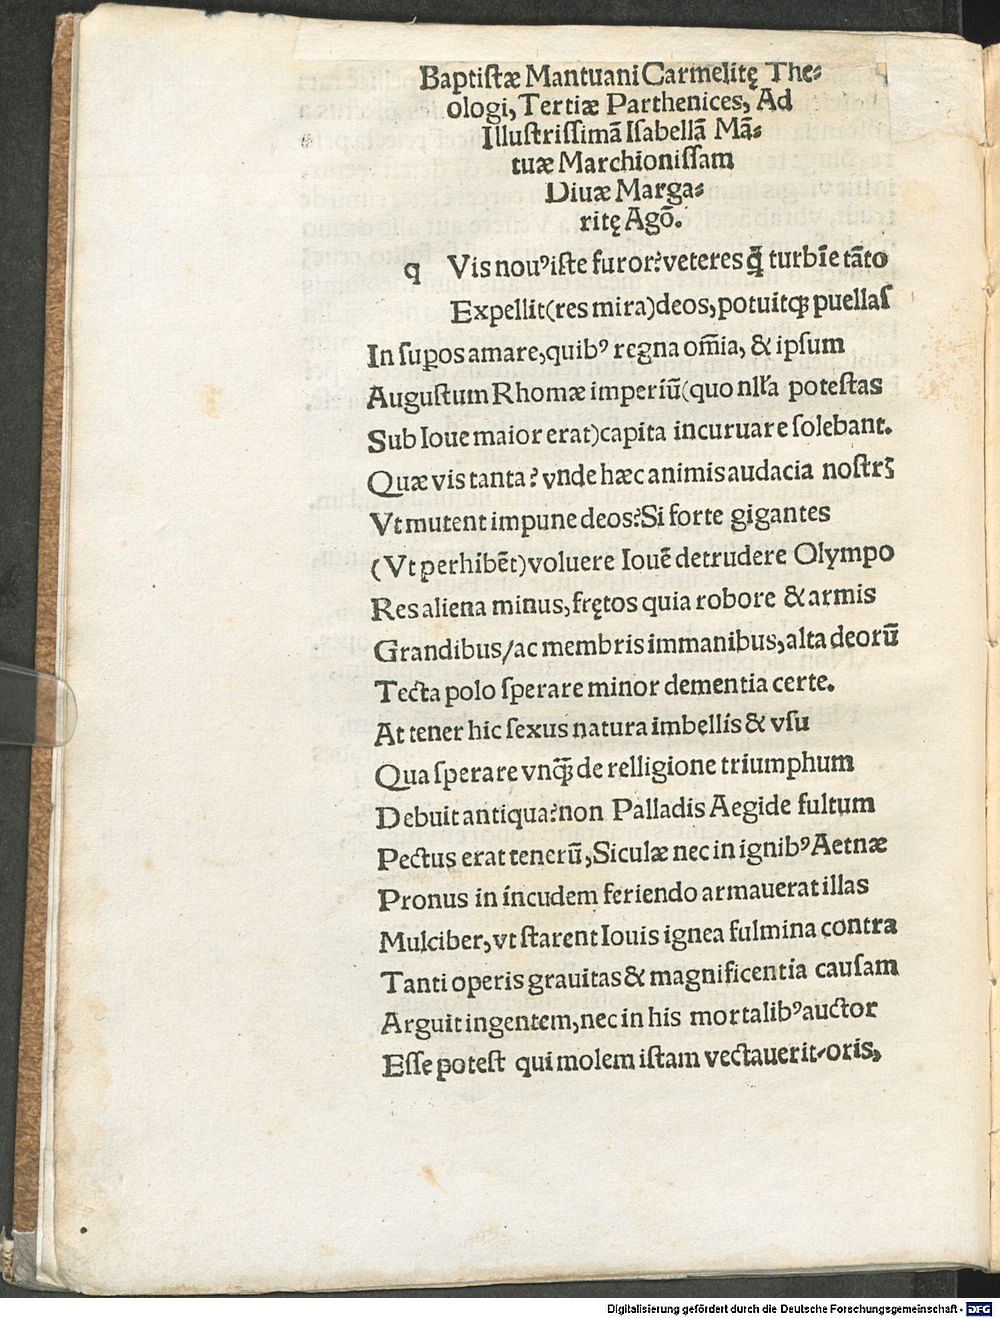 Baptiſtæ Mantuani Carmelitę The⸗
ologi, Tertiæ Parthenices, Ad
Illuſtriſſimã Iſabellã Mã⸗
tuæ Marchioniſſam
Diuæ Marga⸗
ritę Agõ.
q Vis nouꝰ iſte furor? veteres ꝗ̃ turbĩe tãto
Expellit (res mira) deos, potuitqꝫ puellaſ
In ſuꝑos amare, quibꝰ regna om̃ia, & ipſum
Auguſtum Rhomæ imperiũ (quo nlľa poteſtas
Sub Ioue maior erat) capita incuruare ſolebant.
Quæ vis tanta? vnde hæc animis audacia noſtrꝝ
Vt mutent impune deos? Si forte gigantes
(Vt perhibẽt) voluere Iouẽ detrudere Olympo
Res aliena minus, frętos quia robore & armis
Grandibus/ ac membris immanibus, alta deorũ
Tecta polo ſperare minor dementia certe.
At tener hic ſexus natura imbellis & vſu
Qua ſperare vnꝗ̃ de relligione triumphum
Debuit antiqua? non Palladis Aegide fultum
Pectus erat tenerũ, Siculæ nec in ignibꝰ Aetnæ
Pronus in incudem feriendo armauerat illas
Mulciber, vt ſtarent Iouis ignea fulmina contra
Tanti operis grauitas & magnificentia cauſam
Arguit ingentem, nec in his mortalibꝰ auctor
Eſſe poteſt qui molem iſtam vectauerit oris,
Digitalisierung gefördert durch die Deutsche Forschungsgemeinschaft - DFG